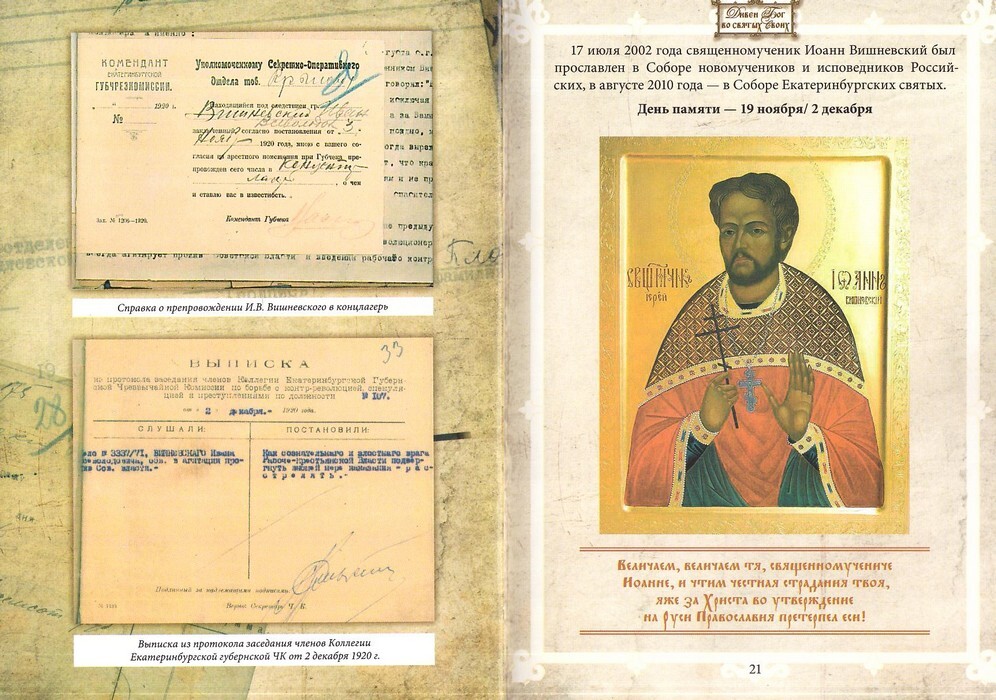 КОМЕНДАНТ
ЕКАТЕРИНБУРГСКОЙ
ГУБЧРЕЗКОМИССИИ.
1920 г.
№
Уполномоченному Секретно-Оперативного
Отдела тов.
Находящийся под следствием гр.
Вишневский Иван
заключенный согласно постановления от 3
1920 года, мною с вашего со-
гласия и арестного помещения при Губчека пре-
провожден сего числа в
, о чем
и ставлю вас в известность.
Комендант Губчека
Зак. № 1206—1920.
Справка о препровождении И.В. Вишневского в концлагерь
33
ВЫПИСКА
из протокола заседания членов Коллегии Екатеринбургской Губерн-
ской Чрезвычайной Комиссии по борьбе с контр-революцией, спекуля-
цией и преступлениями по должности № 107.
от « 2 декабря.- 1920 года.
СЛУШАЛИ: ПОСТАНОВИЛИ:
ело № 3337/71, ВИШНЕВСКАГО Ивана
еволодовича, обв. в агитации про-
тив Сов. власти.-
Как сознательнаго и злостнаго врага
Рабоче-Крестьянской Власти подвер-
гнуть высшей мере наказания - рас-
стрелять.-
Подлинный за надлежащими подписями.
Верно: Секретарь Ч. К.
Выписка из протокола заседания членов Коллегии
Екатеринбургской губернской ЧК от 2 декабря 1920 г.
Дивен Бог
во святых Своих
17 июля 2002 года священномученик Иоанн Вишневский был
прославлен в Соборе новомучеников и исповедников Россий-
ских, в августе 2010 года — в Соборе Екатеринбургских святых.
День памяти — 19 ноября/ 2 декабря
IѠАННЪ
Величаем, величаем тя, священномучениче
Иоанне, и чтим честная страдания твоя,
яже за Христа во утверждение
на Руси Православия претерпел еси!
21